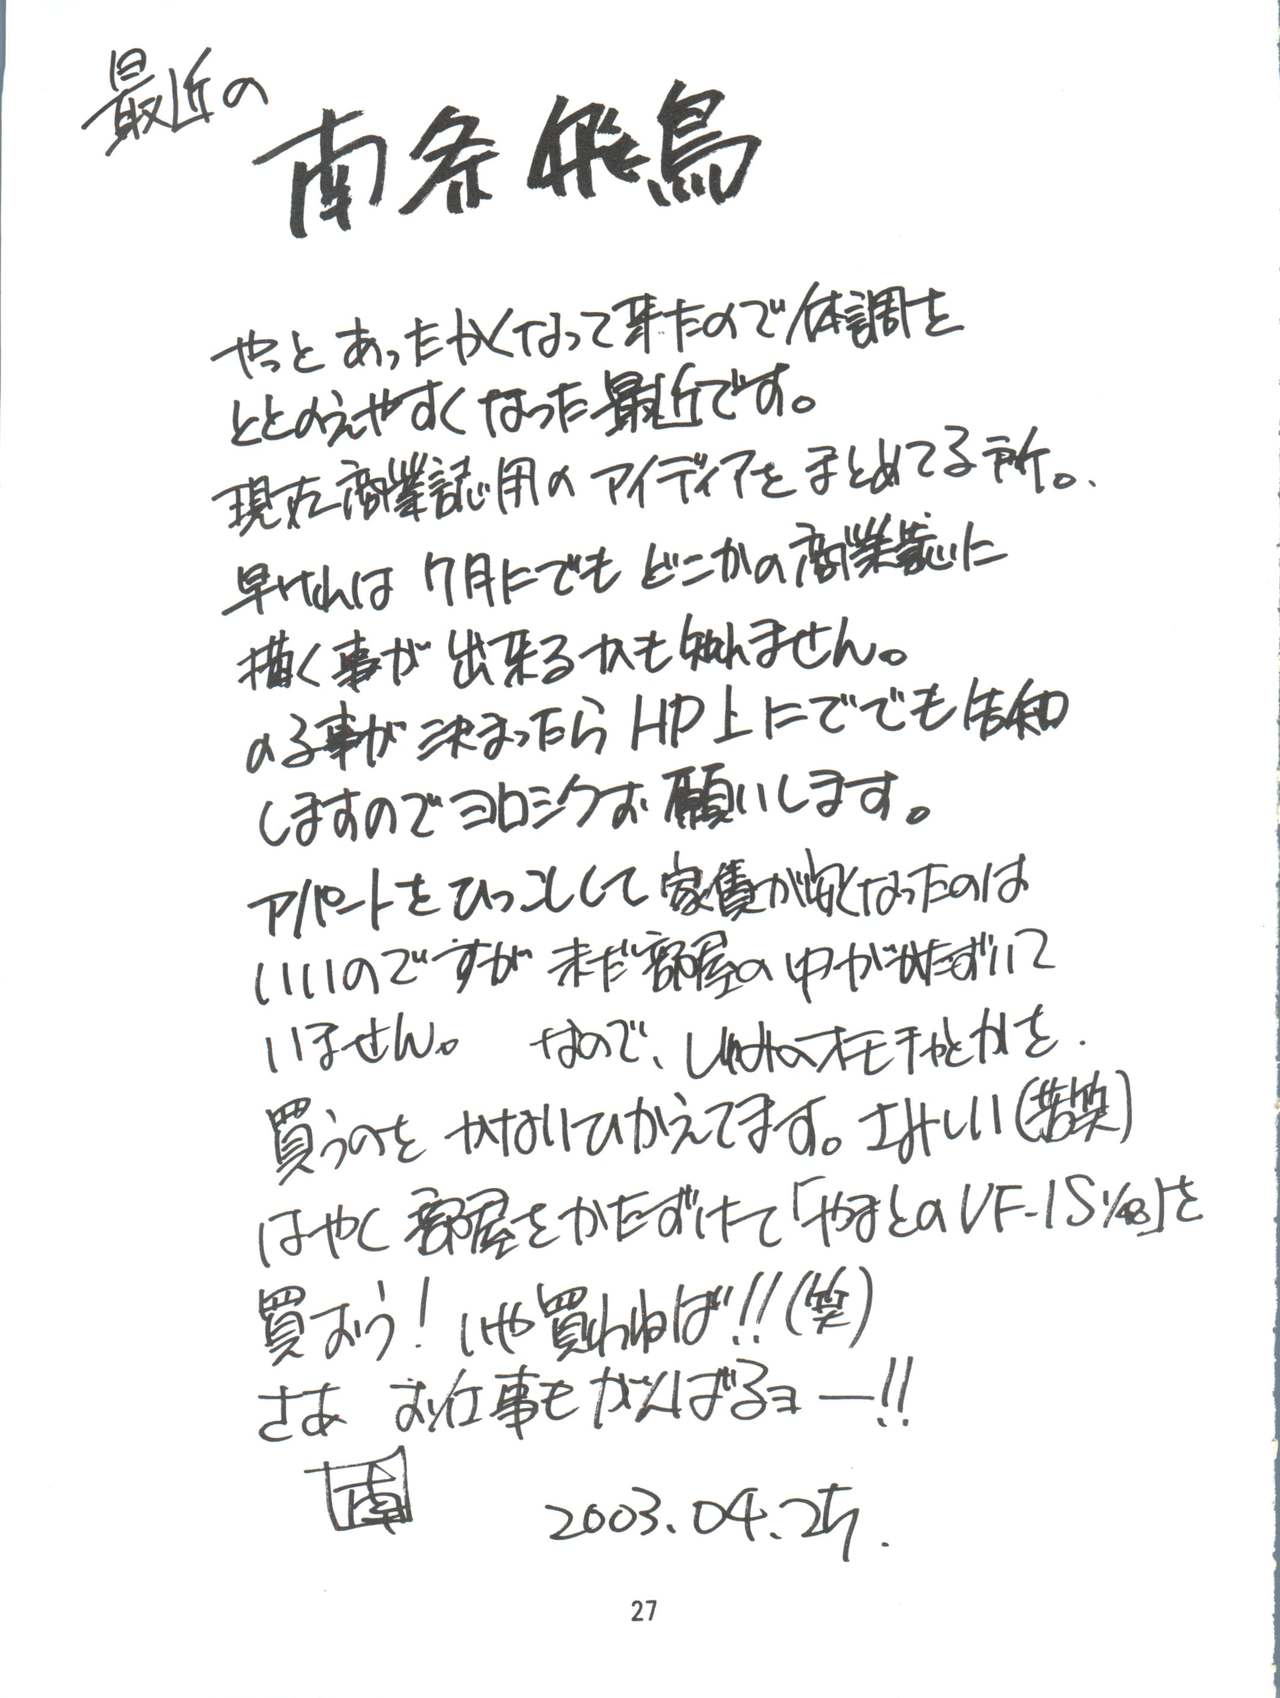 最近の
南条飛鳥
やっとあったかくなって来たので体調を
ととのえやすくなった最近です。
現在商業誌用のアイディアをまとめてる所。
早ければ7月にでもどこかの商業誌に
描く事が出来るかも知れません。
のる事が決まったらHP上にででも告知
しますのでヨロシクお願いします。
アパートをひっこしして家賃が安くなったのは
いいのですが未だ部屋の中がかたずいて
いません。なので、しゅみのオモチャとかを
買うのをかなりひかえてます。さみしい(苦笑)
はやく部屋をかたずけて「やまとのVF-1S 1/48」を
買おう!いや買わねば!!(笑)
さあ お仕事もがんばるヨー!!
南
2003.04.25.
27